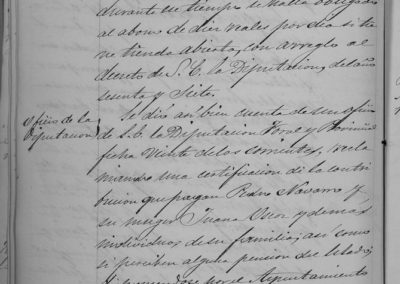 durante ese tiempo se halla obligado
al abono de diez reales por dia si tu-
ve tienda abierta, con arreglo al
decreto de S. E. la Diputacion, del año
sesenta y siete.
Oficio de la
Diputacion
Se dió asi bien cuenta de un oficio
de S. E. la Diputacion Foral y Provincial
fecha veinte de los corrientes, recla
mando una certificacion de la contri
bucion que pagan Pedro Navarro y
su muger Juana y demas
individuos de su familia; asi como
si perciben alguna pension del Estado;
por el Ayuntamiento